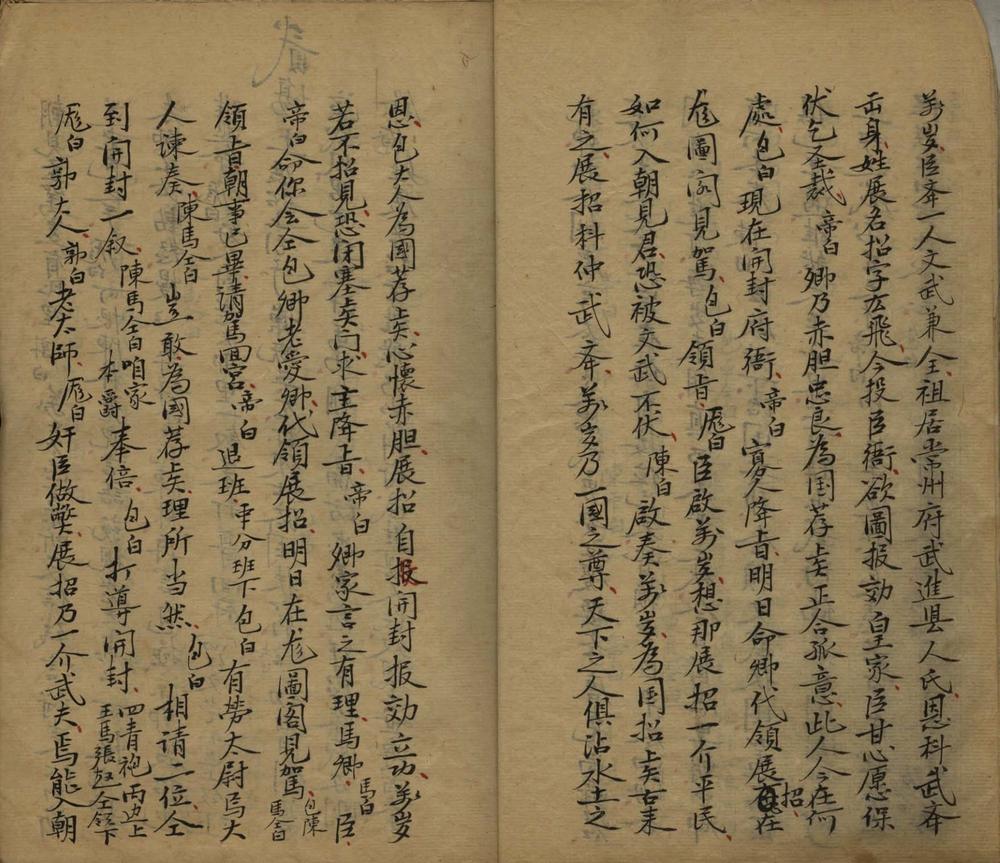 萬岁臣奔一人文武兼仝祖居常州府武進县人氏恩科武奔
出身姓展名招字左飛今投臣衙欲圖报効皇家臣甘心愿保
伏乞圣裁帝白卿乃赤胆忠良為国荐贤正合孤意此人今在何
處包白現在開封府衙帝白寡人降旨明日命卿代領展招在
龙圖阁見駕包白領旨厐白臣啟萬岁想那展招一介平民
如何入朝見君恐被文武不伏陳白啟奏萬岁為国招贤古来
有之展招科仲武奔萬乡乃一國之尊天下之人俱沾水土之
恩包大人為國荐贤心懷赤胆展招自报開封报効立功萬岁
若不招見恐闭塞贤门求主降旨帝白卿家言之有理馬卿馬白臣
帝白命你会仝包卿老爱卿代領展招明日在龙圖阁見駕包陳馬仝白
領旨朝事已畢請駕囬宫帝白退班平分班下包白有劳太尉馬大
人谏奏陳馬仝白岂敢為國荐贤理所当然包白相請二位仝
到開封一叙陳馬仝白咱家本爵奉倍包白打導開封四青袍両边上王馬張赵仝領下
厐白郭大人郭白老太師厐白奸臣做弊展招乃一介武夫焉能入朝